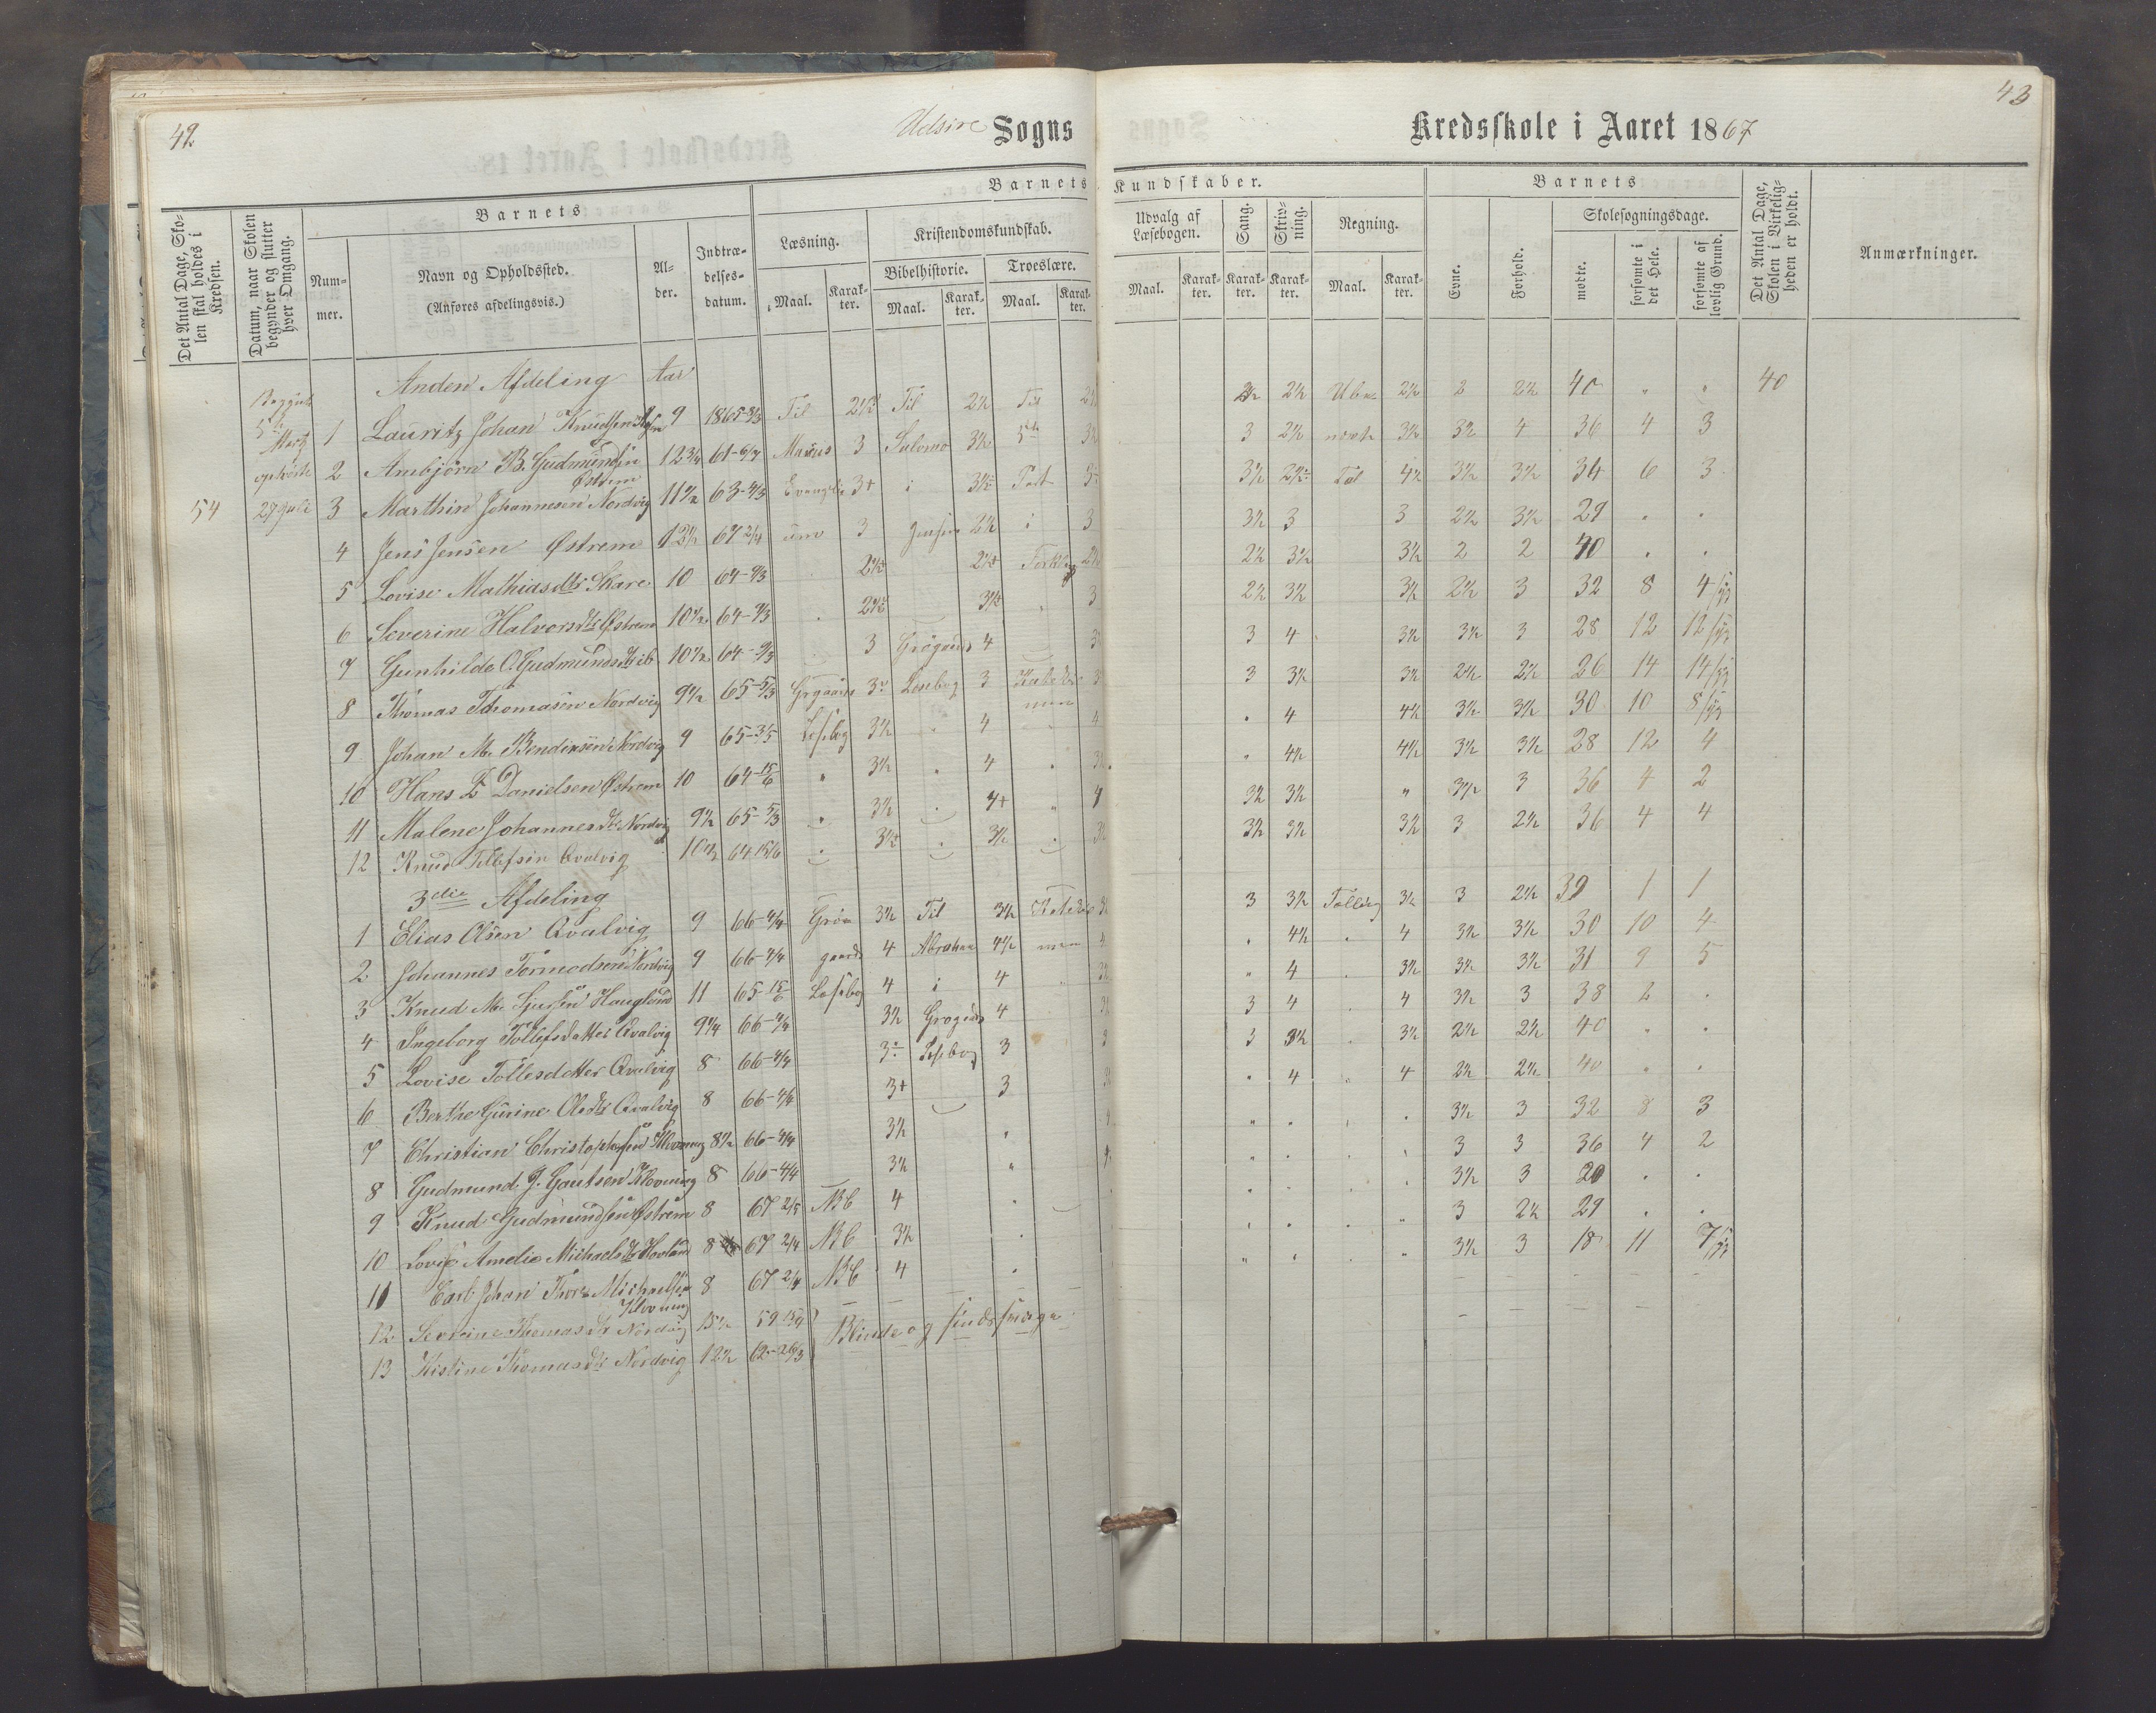 42
Udsire Sogns
Kredsskole i Aaret 1867
43
Det Antal Dage, Skolen skal holdes i Kredsen.
Datum, naar Skolen begynder og slutter hver Omgang.
Barnets
Nummer.
Navn og Opholdssted.
(Anføres afdelingsvis.)
Alder.
Indtrædelsesdatum.
Barnets Kundskaber.
Læsning.
Maal. Karakter.
Kristendomskundskab.
Bibelhistorie.
Maal. Karakter.
Troeslære.
Maal. Karakter.
Udvalg af Læsebogen.
Maal. Karakter.
Sang.
Karakter.
Skrivning.
Karakter.
Regning.
Maal. Karakter.
Barnets
Evne.
Forhold.
Skolesøgningsdage.
mødte.
forsømte i det Hele.
forsømte af lovlig Grund.
Det Antal Dage, Skolen i Virkeligheden er holdt.
Anmærkninger.
Anden Afdeling Aar
1 Lauritz Johan Knudsen 9 1865 Til 2½ Til 2½ Til 2½ 2½ Uben 2½ 2 2½ 40 " " 40
5te Martz
2 Ambjørn B. Gudmundsen Østrem 12¾ 61 Marcus 3 Salomo 3½ 3 2½ 3½ 3½ 4 36 4 3
ophørte
54 27 Juli 3 Marthin Johannesen Nordvig 11½ 63 3+ i 3½ Part 3½ Tal 4½ 3½ 3½ 34 6 3
4 Jens Jensen Østrem 12½ 67 2/4 3 2½ i 3 3½ 3 3 2½ 3½ 29 . .
5 Lovise Mathiasdtr Skare 10 64 2½ 2½ 3½ 3½ 2 2 40 . .
6 Severine Halvorsdtr Østrem 10½ 64 2½ 3½ 3 2½ 3½ 3½ 2½ 3 32 8 4
7 Gunhilde O. Gudmundsdtr ib 10½ 64 3 4 3 4 3½ 3½ 3 28 12 12
8 Thomas Thomasen Nordvig 9½ 65 3 Lesebog 3 3 3½ 3½ 2½ 2½ 26 14 14
9 Johan M. Bendiksen Nordvig 9 65 Lesebog 3½ . 4 4 . 4 4½ 3½ 3½ 30 10 8
10 Hans E Danielsen Østrem 10 64 15/6 " 3½ . 4 . 4½ 4½ 3½ 3½ 28 12 4
11 Malene Johannesdtr Nordvig 9½ 65 3½ . 4+ " 4 3½ 3½ " 3½ 3 36 4 2
12 Knud Tollefsen Qvalvig 64 15/6 3½ 3½ 3½ 3½ 3½ 3 2½ 36 4 4
3die Afdeling
1 Elias Olsen Qvalvig 9 66 4/4 3½ Til 3½ 3 3½ 3½ 3 2½ 39 1 1
2 Johannes Tormodsen Nordvig 9 66 4/4 4 Abraham 4½ . 4½ . 4 3½ 3½ 30 10 4
3 Knud M. Hauglund 11 65 15/6 Lesebog 4 i 4 " 4 . 3½ 3½ 3½ 31 9 5
4 Ingeborg Tollefsdatter Qvalvig 9¼ 66 4/4 3½ 4 3 4 4 3½ 3 38 2 .
5 Lovise Tollesdatter Qvalvig 8 66 4/4 3 Lesebog 3 3 3½ . 3½ 2½ 2½ 40 . .
6 Berthe Gurine Olsdtr Qvalvig 8 66 4/4 3+ 3 . 4 " 4 2½ 2½ 40 . .
7 Christian Christophersen Klovning 8½ 66 4/4 3½ 3½ 3 32 8 3
8 Gudmund J. Gautsen Klovning 8 66 4/4 3½ 3 3 36 4 2
9 Knud Gudmundsen Østrem 8 67 ABC 4 3½ 3 20 . .
10 Lovise Amelie Michaelsdtr Hovland 8 67 2/4 ABC 3½ 3 2½ 29 . .
11 Carl Johan Thore Michaelsen Klovning 8 67 2/4 ABC 4 3½ 3 18 11 7
12 Severine Thomasdtr Nordvig 15½ 59
13 Kistine Thomasdtr Nordvig 12½ 62 26/3
Blinde og sindssvage